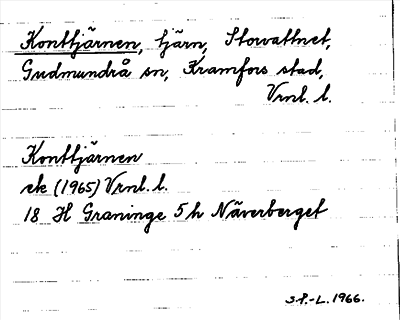 Konttjärnen, tjärn, Storvattnet,
Gudmundrå sn, Kramfors stad,
Vrnl. l.
Konttjärnen
ek (1965) Vrnl. l.
18 H Graninge 5 h Näverberget
S.P.-L. 1966.